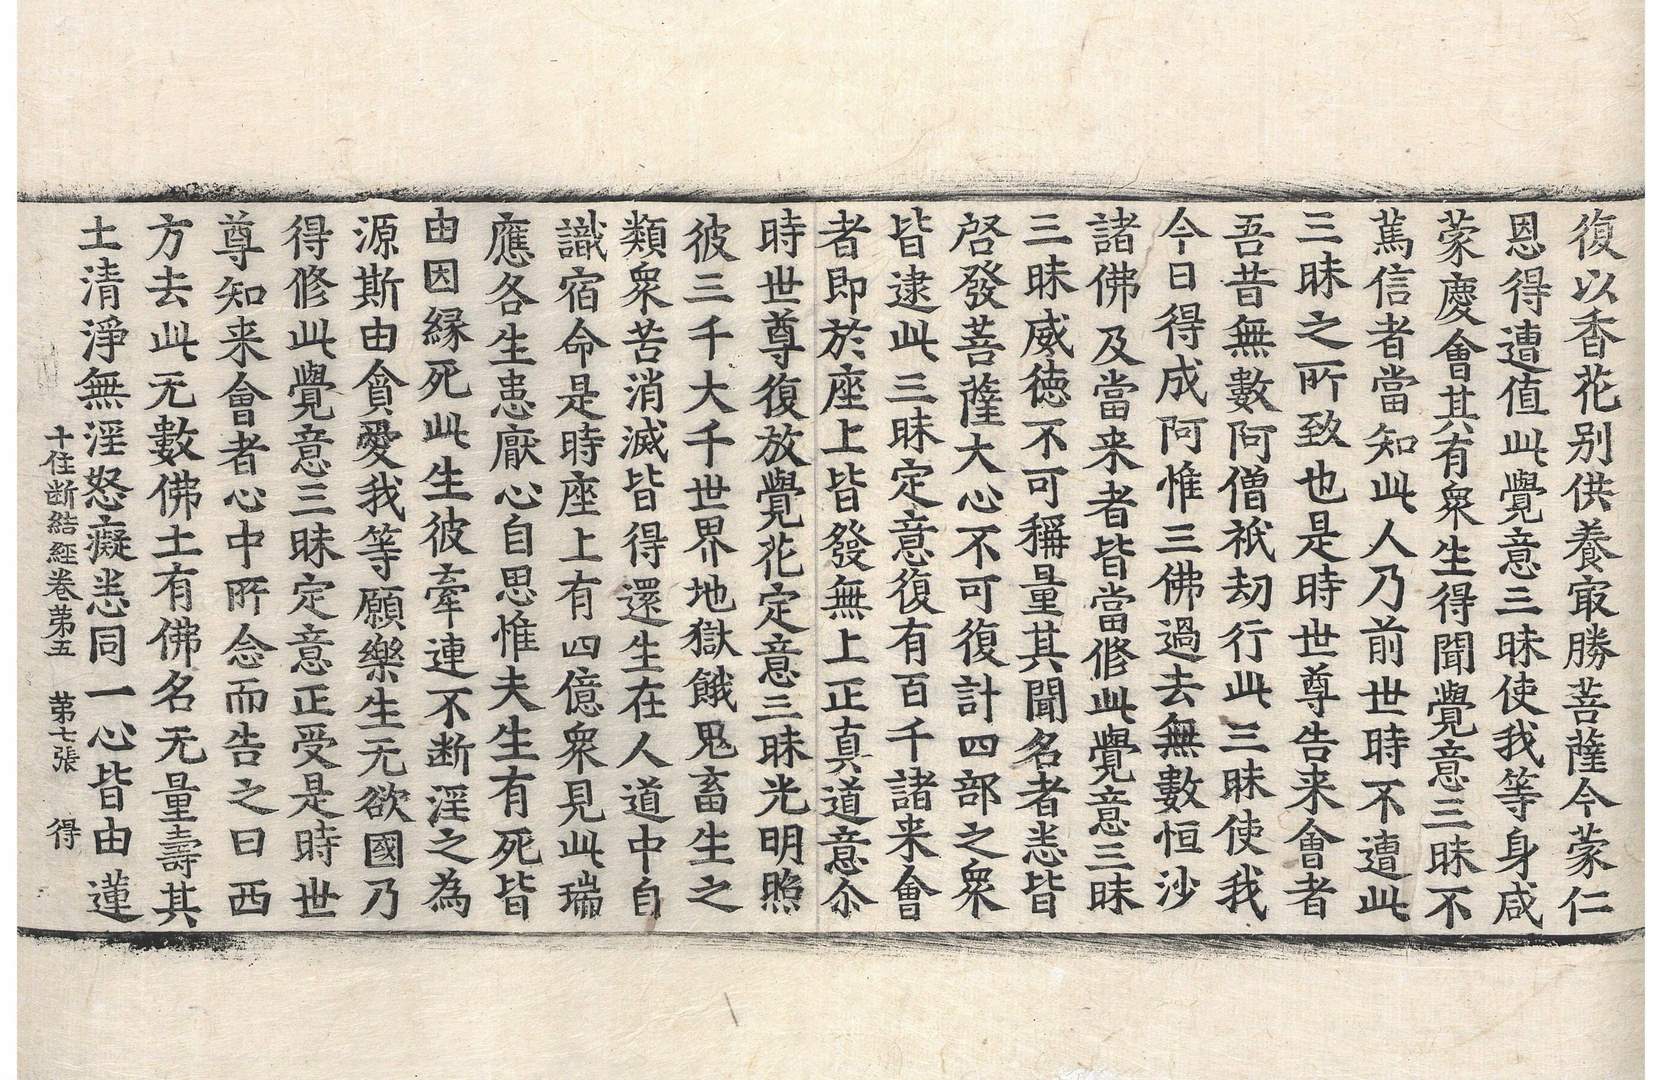 復以香花别供養㝡勝菩薩今蒙仁
恩得遭值此覺意三昧使我等身咸
蒙慶會其有衆生得聞覺意三昧不
篤信者當知此人乃前世時不遭此
三昧之所致也是時世尊告来會者
吾昔無數阿僧祇劫行此三昧使我
今日得成阿惟三佛過去無數恒沙
諸佛及當来者皆當修此覺意三昧
三昧威德不可稱量其聞名者悉皆
啓發菩薩大心不可復計四部之衆
皆逮此三昧定意復有百千諸来會
者即於座上皆發無上正真道意尒
時世尊復放覺花定意三昧光明照
彼三千大千世界地獄餓鬼畜生之
類衆苦消滅皆得還生在人道中自
識宿命是時座上有四億衆見此瑞
應各生患厭心自思惟夫生有死皆
由因緣死此生彼牽連不断淫之為
源斯由貪愛我等願樂生无欲國乃
得修此覺意三昧定意正受是時世
尊知来會者心中所念而告之曰西
方去此无數佛土有佛名无量壽其
土清淨無淫怒癡悉同一心皆由蓮
十住断結經卷苐五　苐七張　得